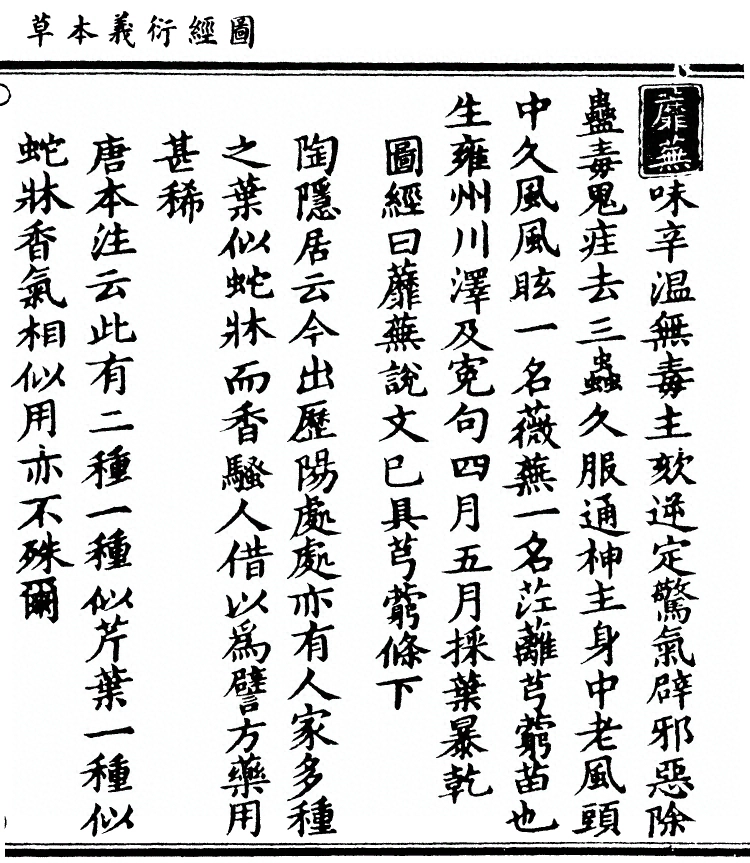 圖經衍義本草
蘼蕪味辛温無毒主欬逆定驚氣辟邪惡除
蠱毒鬼疰去三蟲久服通神主身中老風頭
中久風風眩一名薇蕪一名茳蘺芎藭苗也
生雍州川澤及寃句四月五月採葉暴乾
圖經曰蘼蕪說文已具芎藭條下
陶隱居云今出歷陽處處亦有人家多種
之葉似蛇牀而香騷人借以爲譬方藥用
甚稀
唐本注云此有二種一種似芹葉一種似
蛇牀香氣相似用亦不殊爾